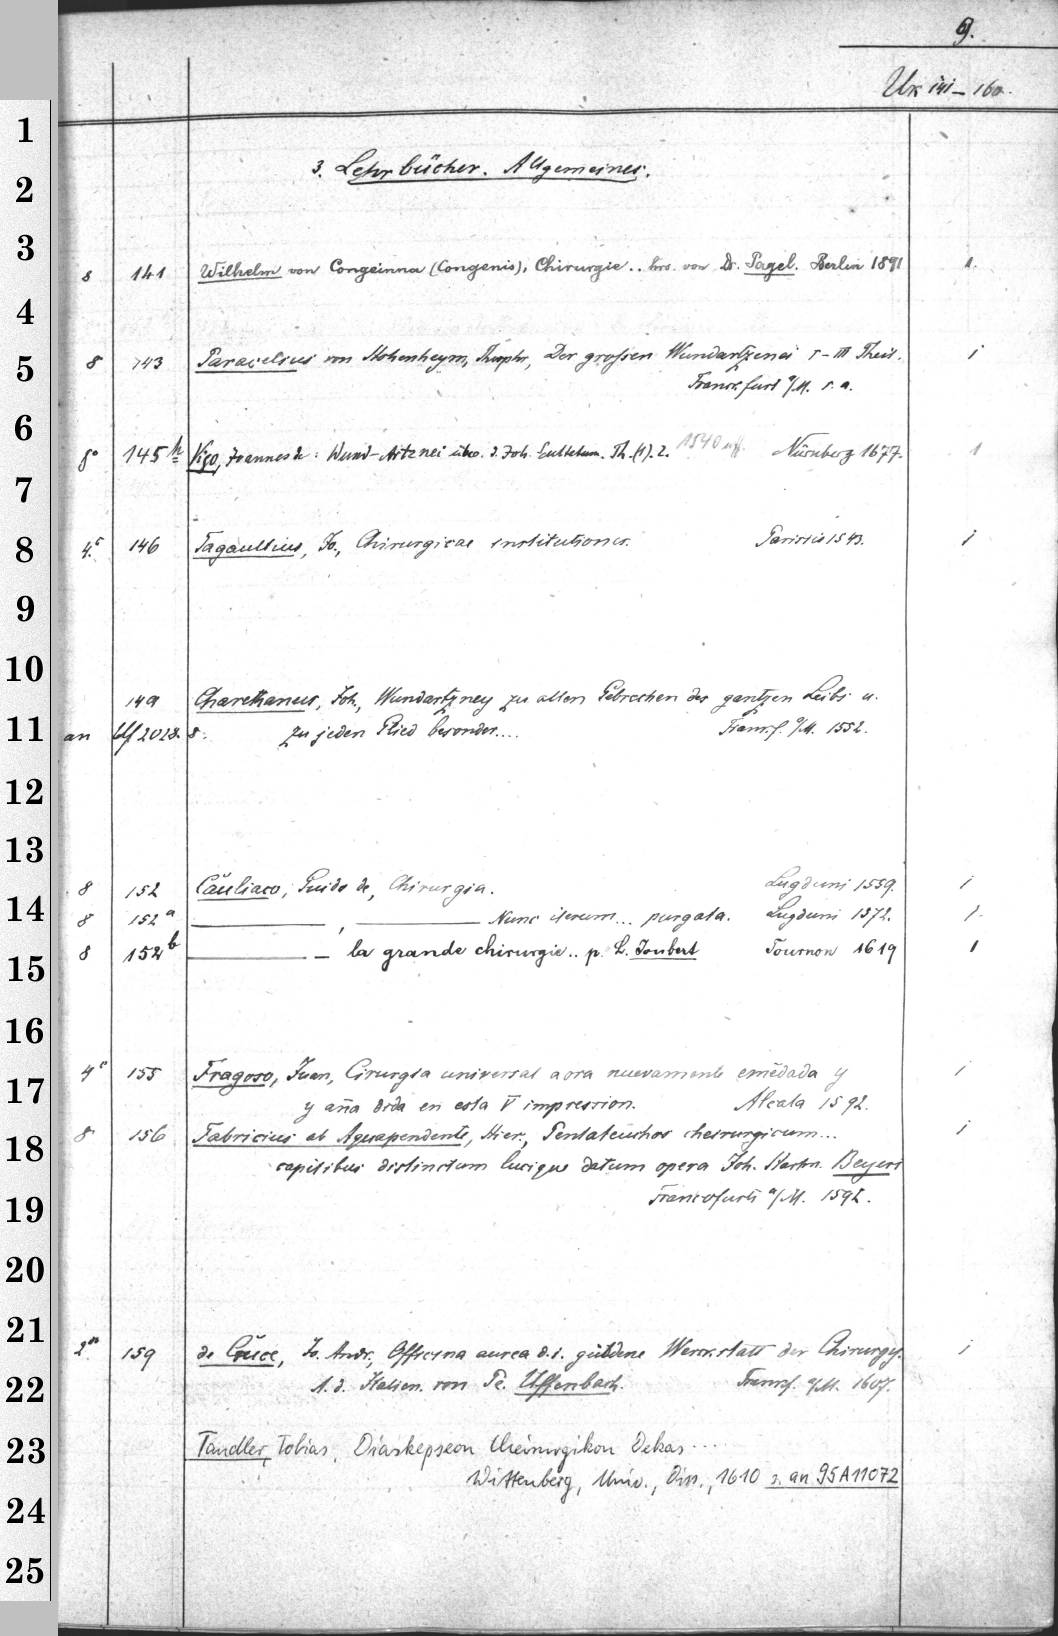 9.
Ux 141-160.
3. Lehrbücher. Allgemeines.
8 141 Wilhelm von Congeinna (Congenis), Chirurgie.. hrs. von Dr. Pagel. Berlin 1891 1.
8 143 Paracelsus von Hohenheym, Theophr., Der grossen Wundartzenei I-III Theil. 1
Franckfurt a/M. s. a.
8° 145 h Vigo, Joannes de: Wund-Artznei übs. d. Joh. Th. (1). 2. 1540 Nürnberg 1677. 1
4.° 146 Tagaultius, Jo., Chirurgicae institutiones. Parisiis 1543. 1
149 Charethanus, Joh., Wundartzney zu allen Gebrechen des gantzen Leibs u.
an Uf 2028. 8. zu jeden Glied besonder.... Franкf. a/M. 1552.
8 152 Cauliaco, Guido de, Chirurgia. Lugduni 1559. 1
8 152a ———, ——— Nunc iterum... purgata. Lugduni 1572. 1.
8 152b ——— — la grande chirurgie.. p. L. Joubert Tournon 1619 1
4° 155 Fragoso, Juan, Cirurgia universal aora nuevamente emēdada y 1
y aña dida en esta V impression. Alcala 1592.
8 156 Fabricius ab Aquapendente, Hier., Pentateuchos cheirurgicum... 1
capitibus distinctum lucique datum opera Joh. Hartm. Beyeri
Francofurti a/M. 1592.
2° 159 de Cruce, Jo. Andr., Officina aurea d. i. güldene Werckstatt der Chirurgy. 1
A. d. Italien. von Pe. Uffenbach. Franckf. a/M. 1607.
Tandler, Tobias, Diaskepseon Cheirurgikon Dekas ...
Wittenberg, Univ., Diss., 1610 s. an 95A11072
1
2
3
4
5
6
7
8
9
10
11
12
13
14
15
16
17
18
19
20
21
22
23
24
25